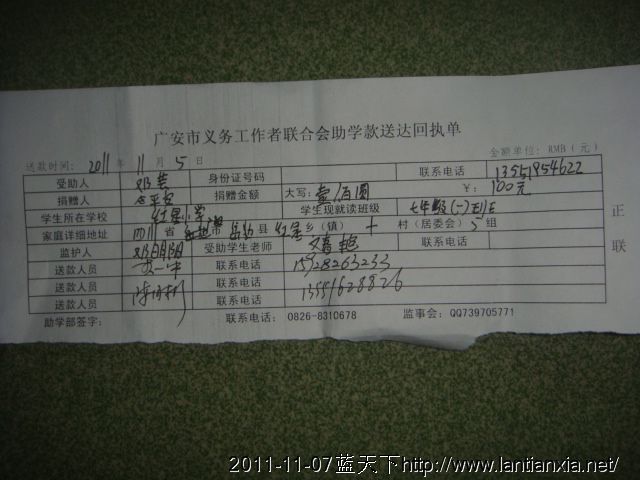 广安市义务工作者联合会助学款送达回执单
送款时间: 2011 年 11 月 5 日 金额单位: RMB(元)
受助人 邓芸 身份证号码 联系电话 13551954622
捐赠人 平安 捐赠金额 大写: 壹佰圆 ¥: 100元
学生所在学校 红星小学 学生现就读班级 七年级(一)班
家庭详细地址 四川 省 市 县 红星 乡(镇) 十 村(居委会) 5 组
监护人 邓明阳 受助学生老师 联系电话
送款人员 联系电话 15928263233
送款人员 联系电话 13551628826
送款人员 联系电话
助学部签字: 联系电话: 0826-8310678 监事会: QQ739705771
正
联
2011-11-07蓝天下http://www.lantianxia.net/